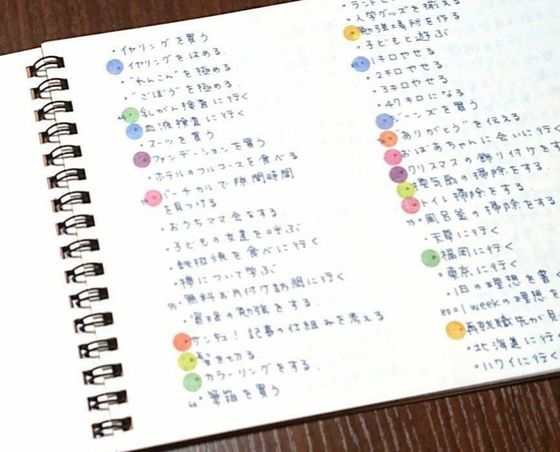 ・イヤリングを買う
イヤリングをはめる.
・"れんこん"を極める.
・"ごぼう"を極める.
乳がん検査に行く
血液検査に行く
・スーツを買う
ファンデーションを買う
・ホテルのフルコースを食べる
バーチカルで隙間時間
を見つける
・おうちママ会をする.
・子どもの友達を呼ぶ
・鉄板焼を食べに行く
・禅について学ぶ
・無料お片付け訪問に行く
・資格の勉強をする.
サンキュ!記事の仕組みを考える
髪を切る
カラーリングをする.
・筆箱を買う
・入学グッズを揃える
勉強場所を作る
・子どもと遊ぶ
1キロやせる
・2キロやせる
・3キロやせる
・47キロになる
ジーンズを買う
"ありがとう"を伝える
おばあちゃんに会いに行
クリスマスの飾り付けをす
換気扇の掃除をする.
トイレ掃除をする
・風呂釜の掃除をする
・天草に行く
福岡に行く
・東京に行く
・1日の理想を書
・1weekの理想
再就職先が見
・北海道に行
・ハワイに行く